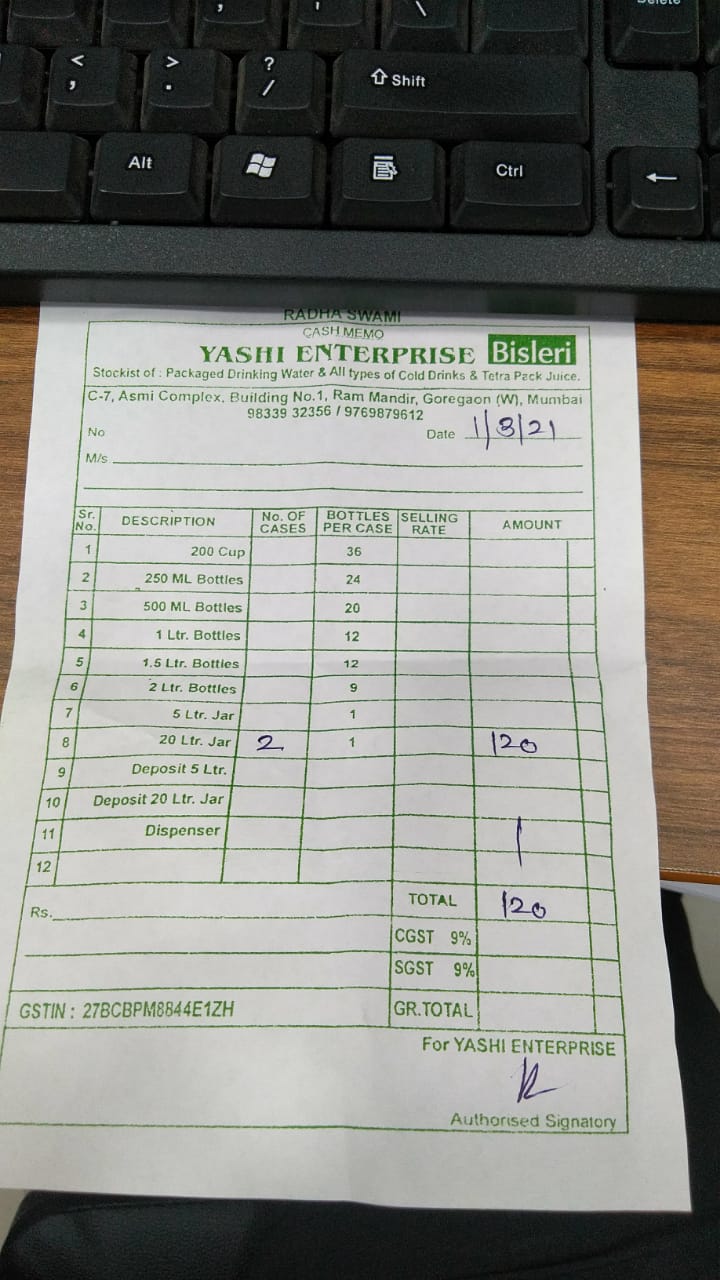 Delete
<
,
>
.
?
/
Shift
Alt
Ctrl
RADHA SWAMI
CASH MEMO
YASHI ENTERPRISE Bisleri
Stockist of : Packaged Drinking Water & All types of Cold Drinks & Tetra Pack Juice.
C-7, Asmi Complex, Building No.1, Ram Mandir, Goregaon (W), Mumbai
98339 32356 / 9769879612
No Date 1/8/21
M/s
Sr. No. DESCRIPTION No. OF CASES BOTTLES PER CASE SELLING RATE AMOUNT
1 200 Cup 36
2 250 ML Bottles 24
3 500 ML Bottles 20
4 1 Ltr. Bottles 12
5 1.5 Ltr. Bottles 12
6 2 Ltr. Bottles 9
7 5 Ltr. Jar 1
8 20 Ltr. Jar 2 1 120
9 Deposit 5 Ltr.
10 Deposit 20 Ltr. Jar
11 Dispenser
12
Rs. TOTAL 120
CGST 9%
SGST 9%
GSTIN : 27BCBPM8844E1ZH GR.TOTAL
For YASHI ENTERPRISE
Authorised Signatory